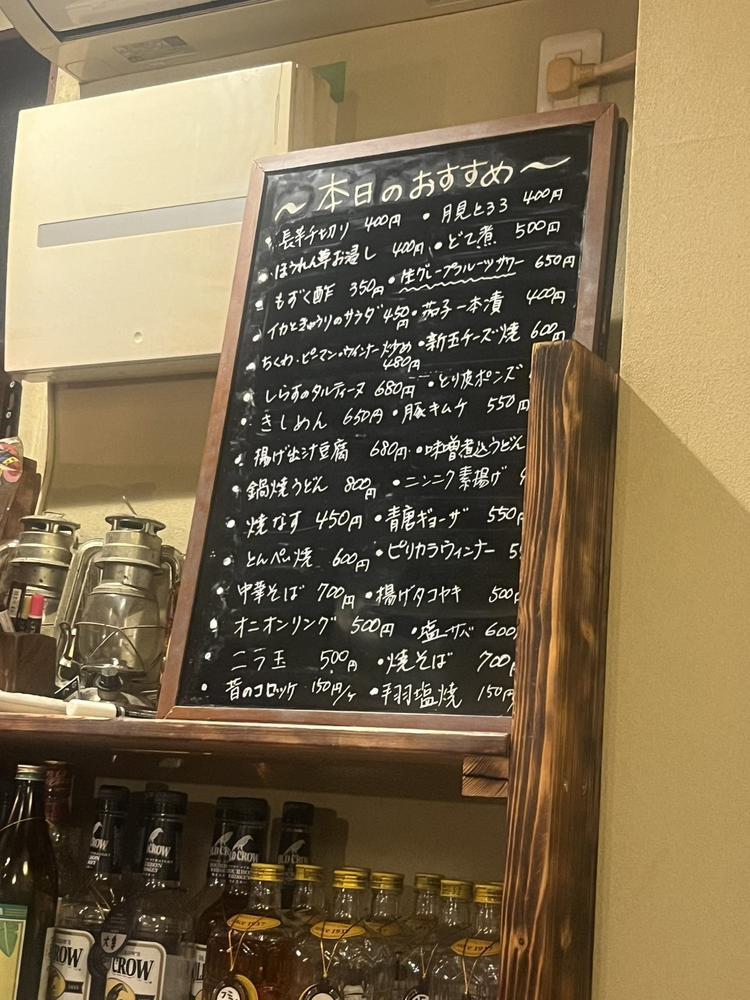 ～本日のおすすめ～
・長芋千切り 400円 ・月見とろろ 400円
・ほうれん草お浸し 400円 ・どて煮 500円
・もずく酢 350円 ・生グレープフルーツサワー 650円
・イカときゅうりのサラダ 450円 ・茄子一本漬 400円
・ちくわ・ピーマン・ウインナー炒め 480円 ・新玉チーズ焼 600円
・しらすのタルティーヌ 680円 ・とり皮ポンズ
・きしめん 650円 ・豚キムチ 550円
・揚げ出汁豆腐 680円 ・味噌煮込うどん
・鍋焼うどん 800円 ・ニンニク素揚げ
・焼なす 450円 ・青唐ギョーザ 550円
・とんぺい焼 600円 ・ピリカラウィンナー
・中華そば 700円 ・揚げタコヤキ 500円
・オニオンリング 500円 ・塩サバ 600
・ニラ玉 500円 ・焼そば 700円
・昔のコロッケ 150円/ヶ ・手羽塩焼 150円
OLD CROW
CROW
CROW
since 1937
since 1937
since 1937